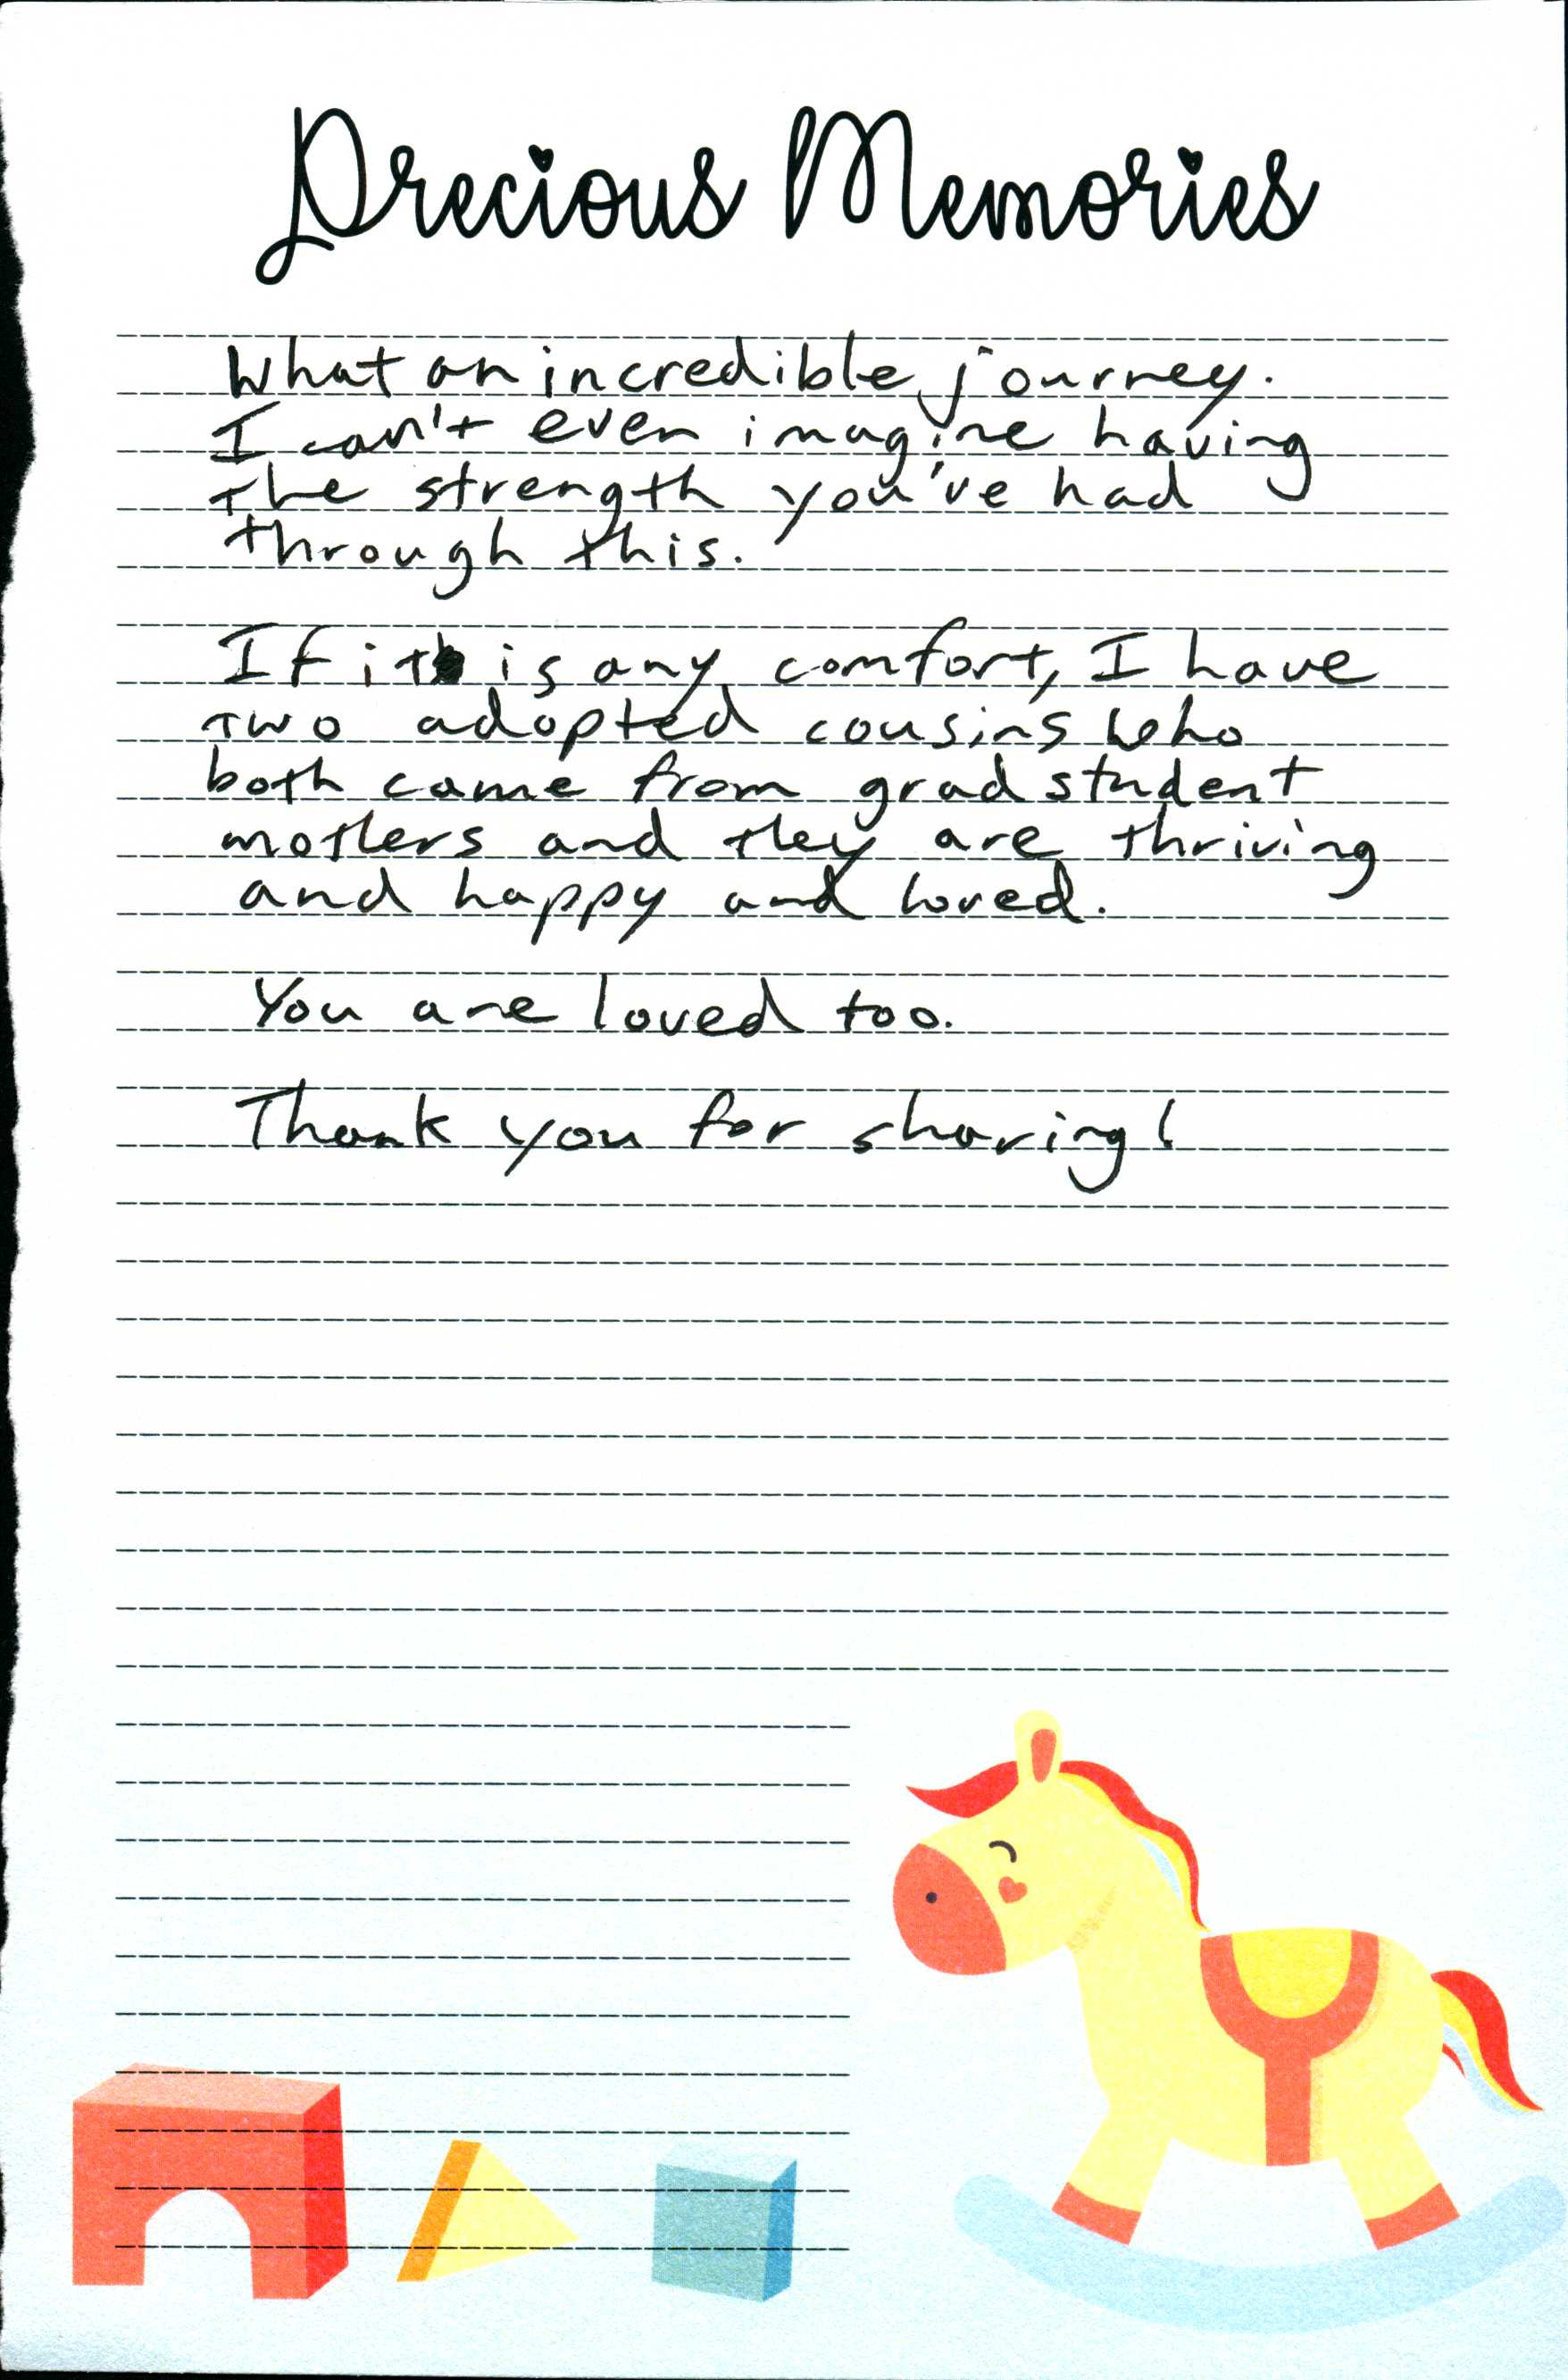 Precious Memories
What an incredible journey.
I can't even imagine having
the strength you've had
through this.
If it is any comfort, I have
two adopted cousins who
both came from grad student
mothers and they are thriving
and happy and loved.
You are loved too.
Thank you for sharing!